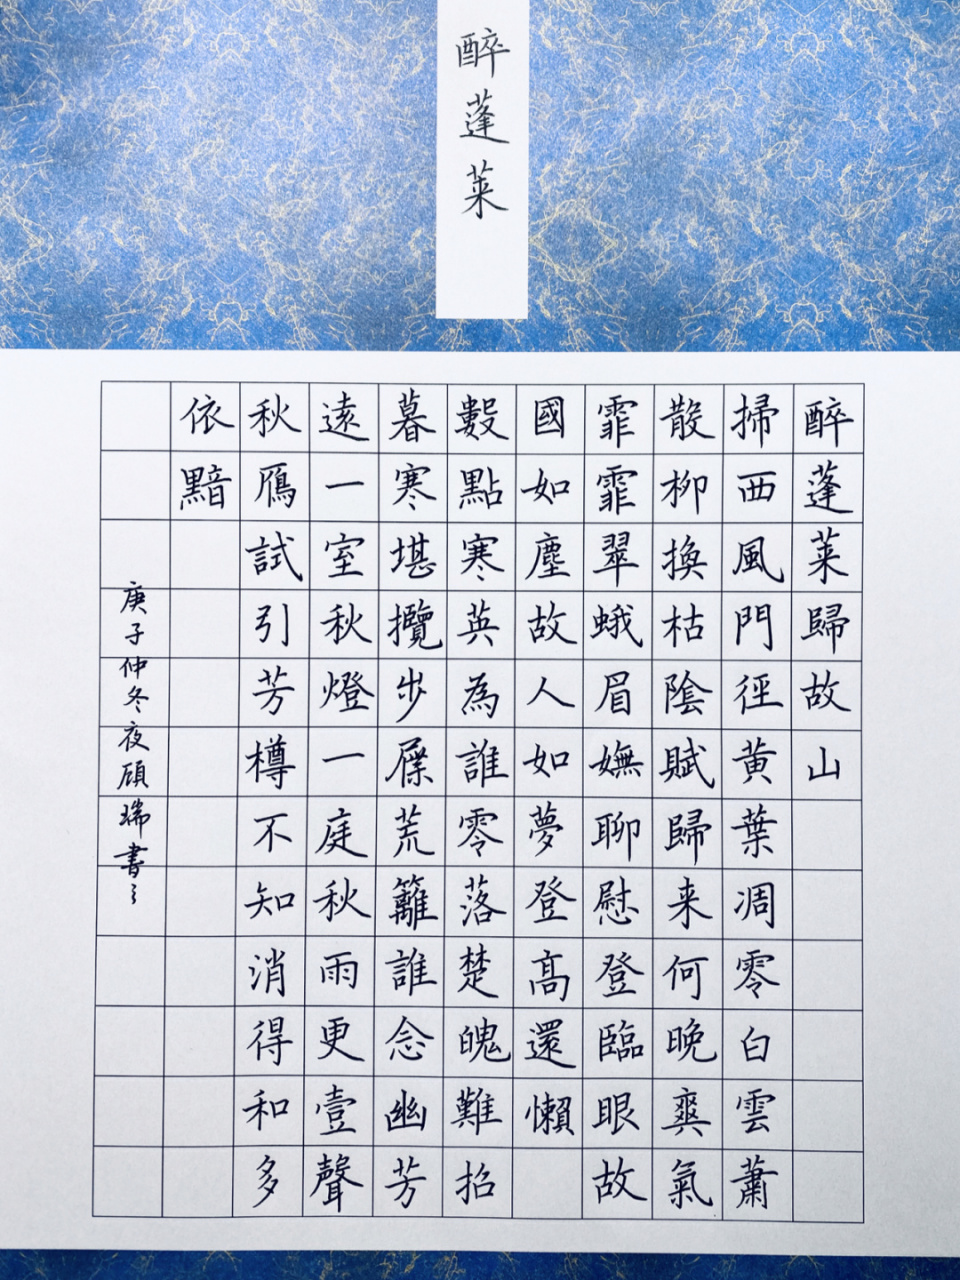 醉蓬萊
醉蓬萊歸故山
掃西風門徑黃葉凋零白雲蕭
散柳換枯陰賦歸来何晚爽氣
霏霏翠蛾眉嫵聊慰登臨眼故
國如塵故人如夢登高還懶
數點寒英為誰零落楚魄難招
暮寒堪攬步屧荒籬誰念幽芳
遠一室秋燈一庭秋雨更壹聲
秋鴈試引芳樽不知消得和多
依黯
庚子仲冬夜顧瑞書〻